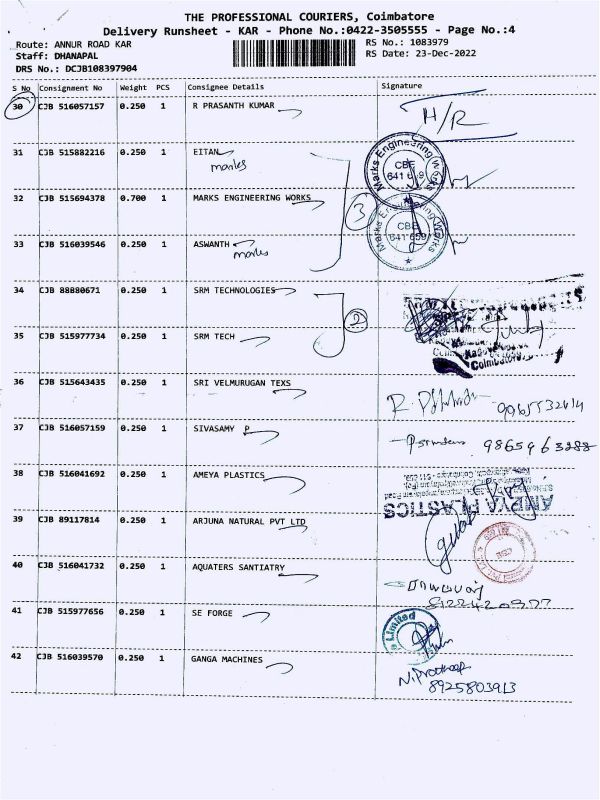 THE PROFESSIONAL COURIERS, Coimbatore
Delivery Runsheet - KAR - Phone No.:0422-3505555 - Page No.:4
Route: ANNUR ROAD KAR
RS No.: 1083979
Staff: DHANAPAL
RS Date: 23-Dec-2022
DRS No.: DCJCB108397904
S No Consignment No Weight PCS Consignee Details Signature
30 CJB 516057157 0.250 1 R PRASANTH KUMAR H/R
31 CJB 515882216 0.250 1 EITAN
marks
Marks Engineering Works
CBE
32 CJB 515694378 0.700 1 MARKS ENGINEERING WORKS
3
Marks Engineering Works
CBE
641 659
33 CJB 516039546 0.250 1 ASWANTH
marks
34 CJB 88B80671 0.250 1 SRM TECHNOLOGIES
2
35 CJB 515977734 0.250 1 SRM TECH
Coimbatore
36 CJB 515643435 0.250 1 SRI VELMURUGAN TEXS
37 CJB 516057159 0.250 1 SIVASAMY P
98659 63288
38 CJB 516041692 0.250 1 AMEYA PLASTICS
PLASTICS
39 CJB 89117814 0.250 1 ARJUNA NATURAL PVT LTD
40 CJB 516041732 0.250 1 AQUATERS SANTIATRY
41 CJB 515977656 0.250 1 SE FORGE
Limited
42 CJB 516039570 0.250 1 GANGA MACHINES
N. Pratheep
8925803913